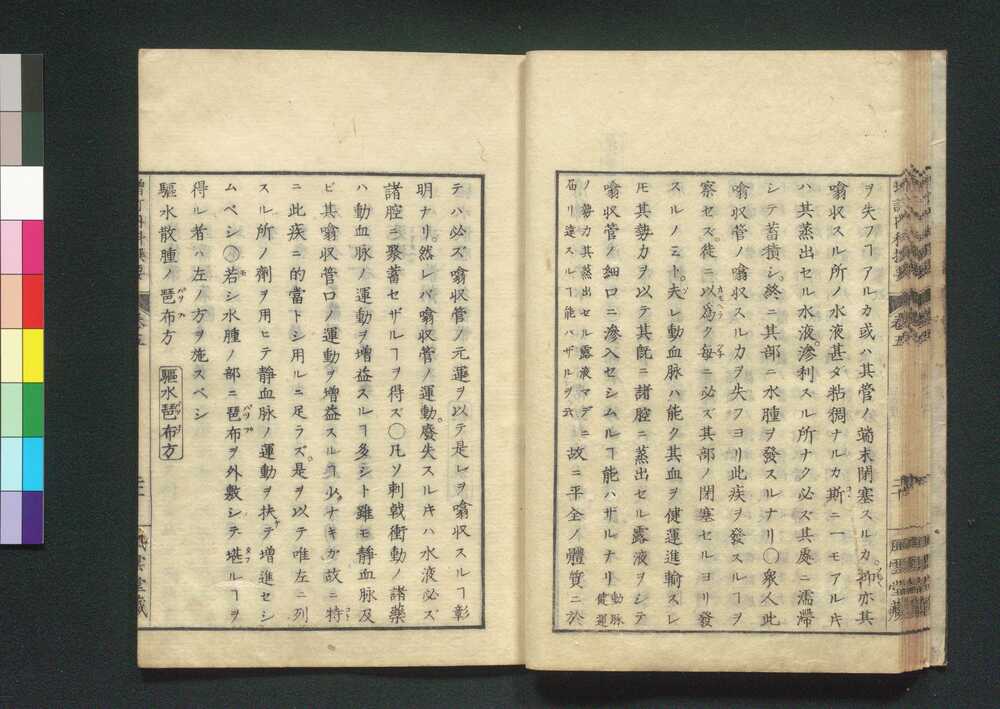 ヲ失フヿアルカ或ハ其管ノ端末閉塞スルカ。抑亦其
噏収スル所ノ水液甚ダ粘稠ナルカ斯ニ一モアルキ
ハ其蒸出セル水液。滲利スル所ナク必ズ其處ニ濡滯
シテ蓄積シ。終ニ其部ニ水腫ヲ發スルナリ〇衆人此
噏収管ノ噏収スルカヲ失フヨリ此疾ヲ發スルヿヲ
察セズ。徒ニ以爲ク每ニ必ズ其部ノ閉塞セルヨリ發
スルノミト。夫レ動血脉ハ能ク其血ヲ健運進輸スレ
モ其勢力ヲ以テ其旣ニ諸腔ニ蒸出セル露液ヲシテ
噏収管ノ細口ニ滲入セシムルヿ能ハザルナリ動脉健運
ノ勢力其蒸出セル露液マデニ
届リ達スルヿ能ハザルヲ云故ニ平全ノ體質ニ於
增訂內科撰要
卷五
二十
風雲堂藏
テハ必ズ噏収管ノ元運ヲ以テ是レヲ噏収スルヿ彰
明ナリ。然レバ噏収管ノ運動。廢失スルキハ水液必ズ
諸腔ニ聚蓄セザルヿヲ得ズ〇凡ソ刺戟衝動ノ諸藥
ハ動血脉ノ運動ヲ增益スルヿ多シト雖モ靜血脉及
ビ其噏収管口ノ運動ヲ增益スルヿ少ナキガ故ニ特
ニ此疾ニ的當トシ用ルニ足ラズ。是ヲ以テ唯左ニ列
スル所ノ劑ヲ用ヒテ靜血脉ノ運動ヲ扶テ增進セシ
ムベシ〇若シ水腫ノ部ニ琶布ヲ外敷シテ堪ルヿヲ
得ル者ハ左ノ方ヲ施スベシ
驅水散腫ノ琶布方 驅水琶布方